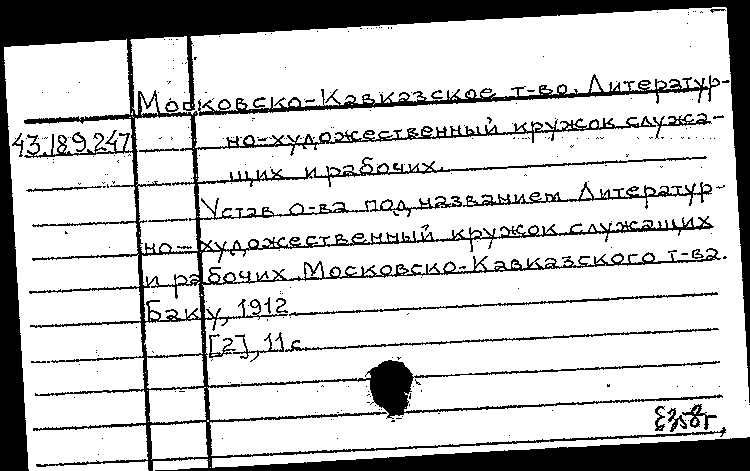 Московско-Кавказское т-во. Литератур-
43.189.247 но-художественный кружок служа-
щих и рабочих.
Устав о-ва под названием Литератур-
но-художественный кружок служащих
и рабочих Московско-Кавказского т-ва.
Баку, 1912
[2], 11 с.